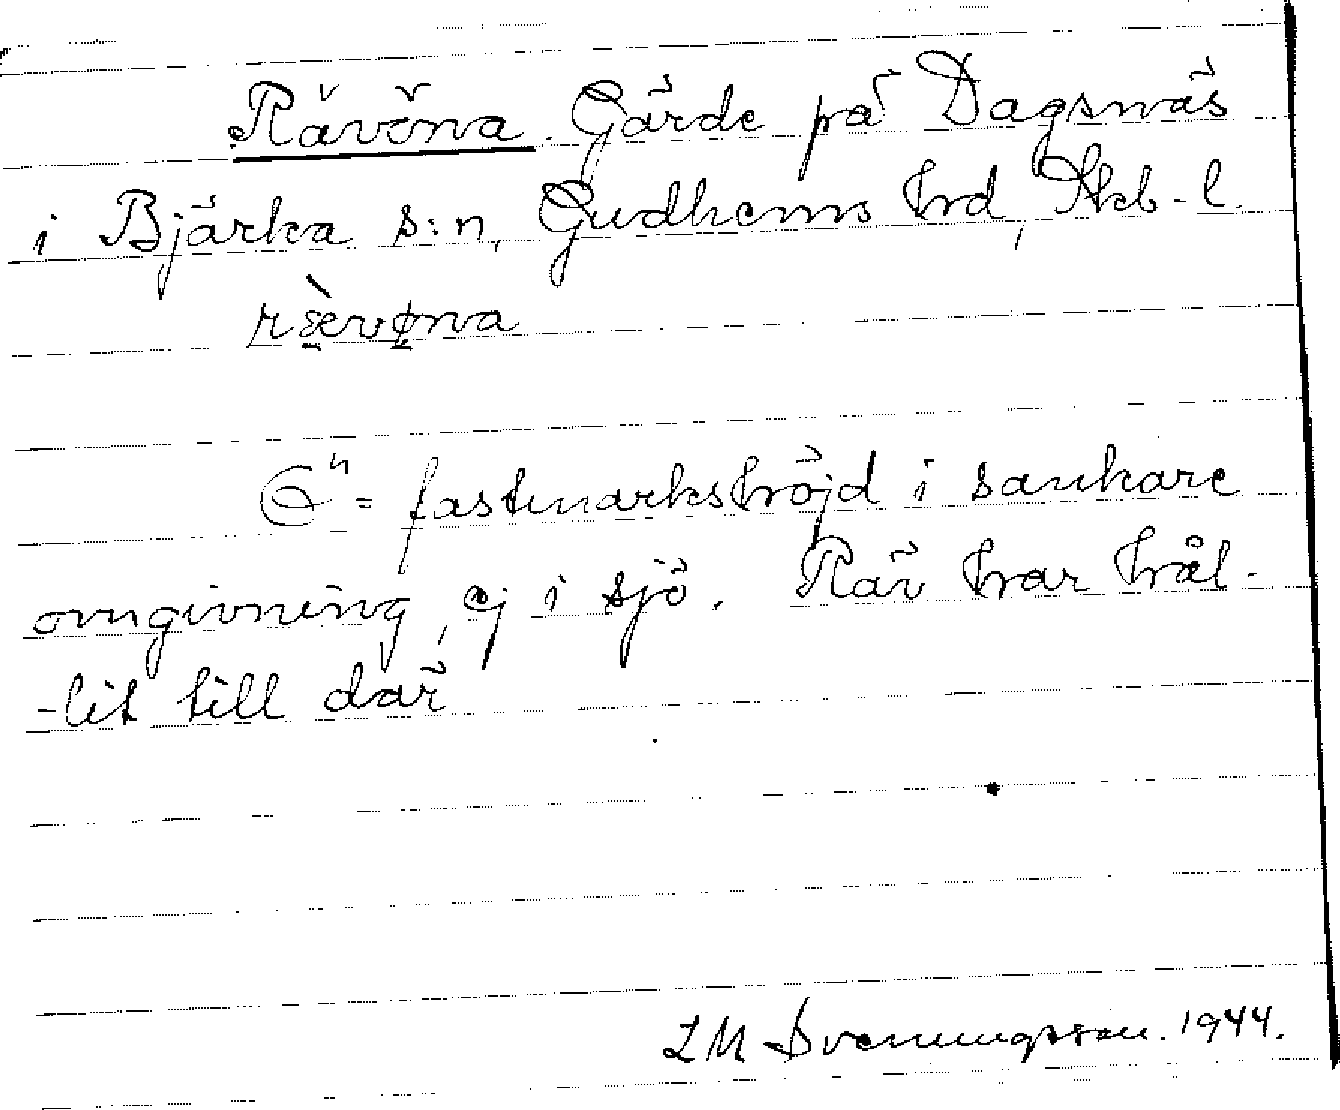 Rävöna. Gärde på Dagsnäs
i Bjärka s:n, Gudhems hrd, Skb-l.
rævøna
Ö = fastmarkshöjd i sankare
omgivning, ej i sjö. Räv har hål-
-lit till där
LM Svenungsson. 1944.